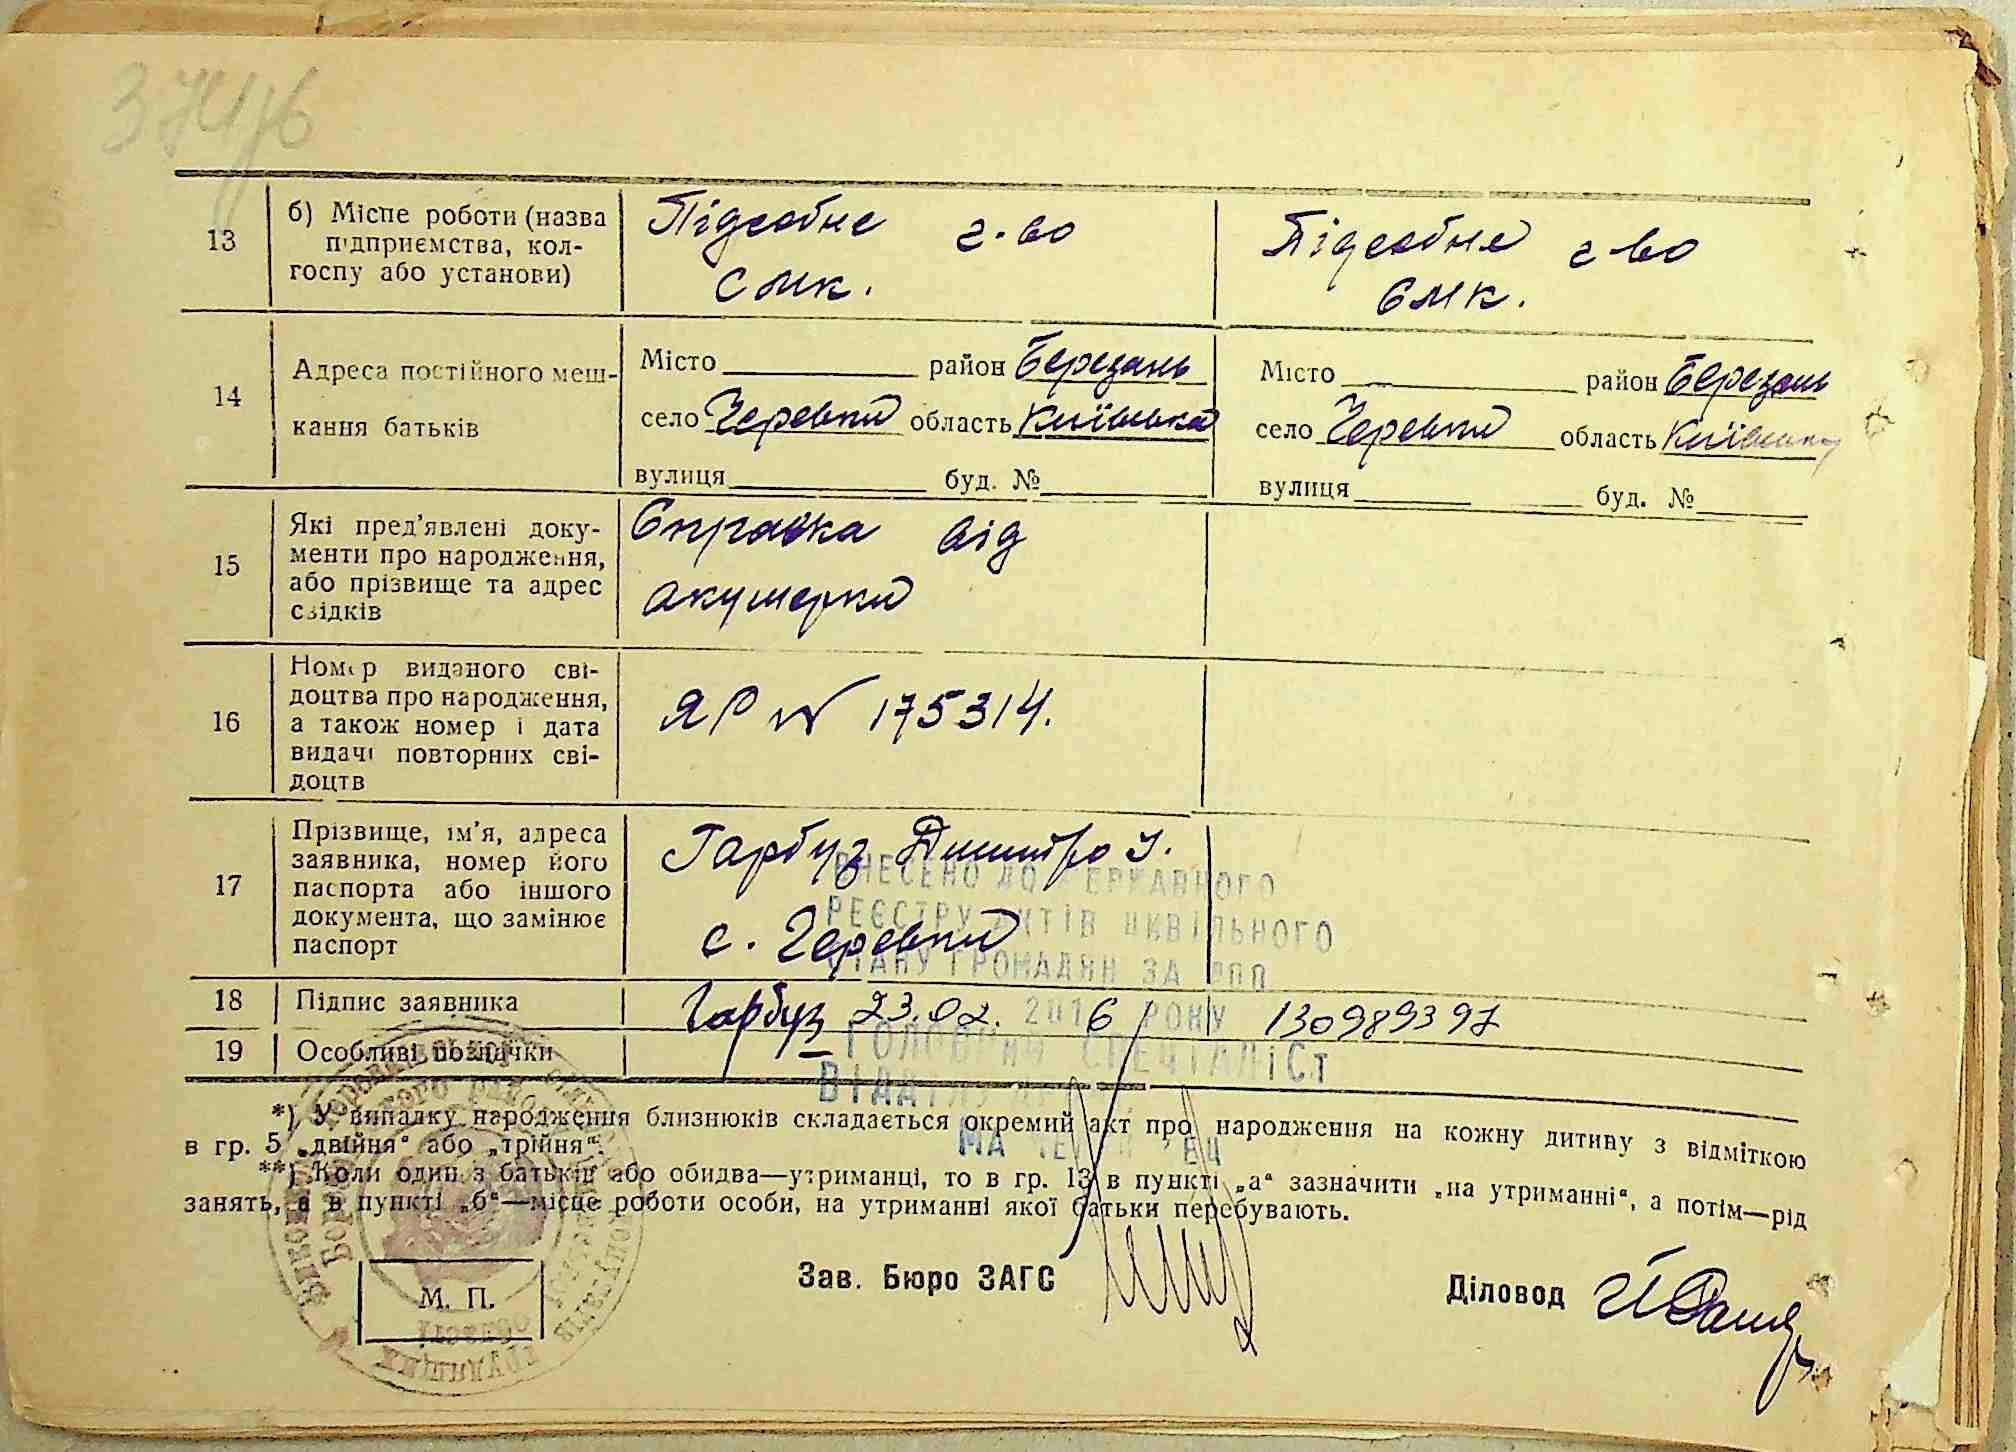 13
б) Місце роботи (назва
підприємства, кол-
госпу або установи)
Підсобне г-во
СМК.
Підсобне г-во
СМК.
14
Адреса постійного меш-
кання батьків
Місто район Березань
село Черевки область Київська
вулиця буд. №
Місто район Березань
село Черевки область Київська
вулиця буд. №
15
Які пред'явлені доку-
менти про народження,
або прізвище та адрес
свідків
Справка від
акушерки
16
Номер виданого сві-
доцтва про народження,
а також номер і дата
видачі повторних сві-
доцтв
ЯР № 175314.
17
Прізвище, ім'я, адреса
заявника, номер його
паспорта або іншого
документа, що замінює
паспорт
Гарбуз Дмитро
с. Черевки
ВНЕСЕНО ДО ДЕРЖАВНОГО
РЕЄСТРУ АКТІВ ЦИВІЛЬНОГО
СТАНУ ГРОМАДЯН ЗА
18 Підпис заявника
Гарбуз 23.02. 2016 РОКУ 130989397
19 Особливі позначки
ГОЛОВНИЙ СПЕЦІАЛІСТ
ВІДДІЛУ
*) У випадку народження близнюків складається окремий акт про народження на кожну дитину з відміткою
в гр. 5 „двійня“ або „трійня“.
**) Коли один з батьків або обидва—утриманці, то в гр. 13 в пункті „а“ зазначити „на утриманні“, а потім—рід
занять, а в пункті „б“—місце роботи особи, на утриманні якої батьки перебувають.
М. П.
Зав. Бюро ЗАГС
Діловод